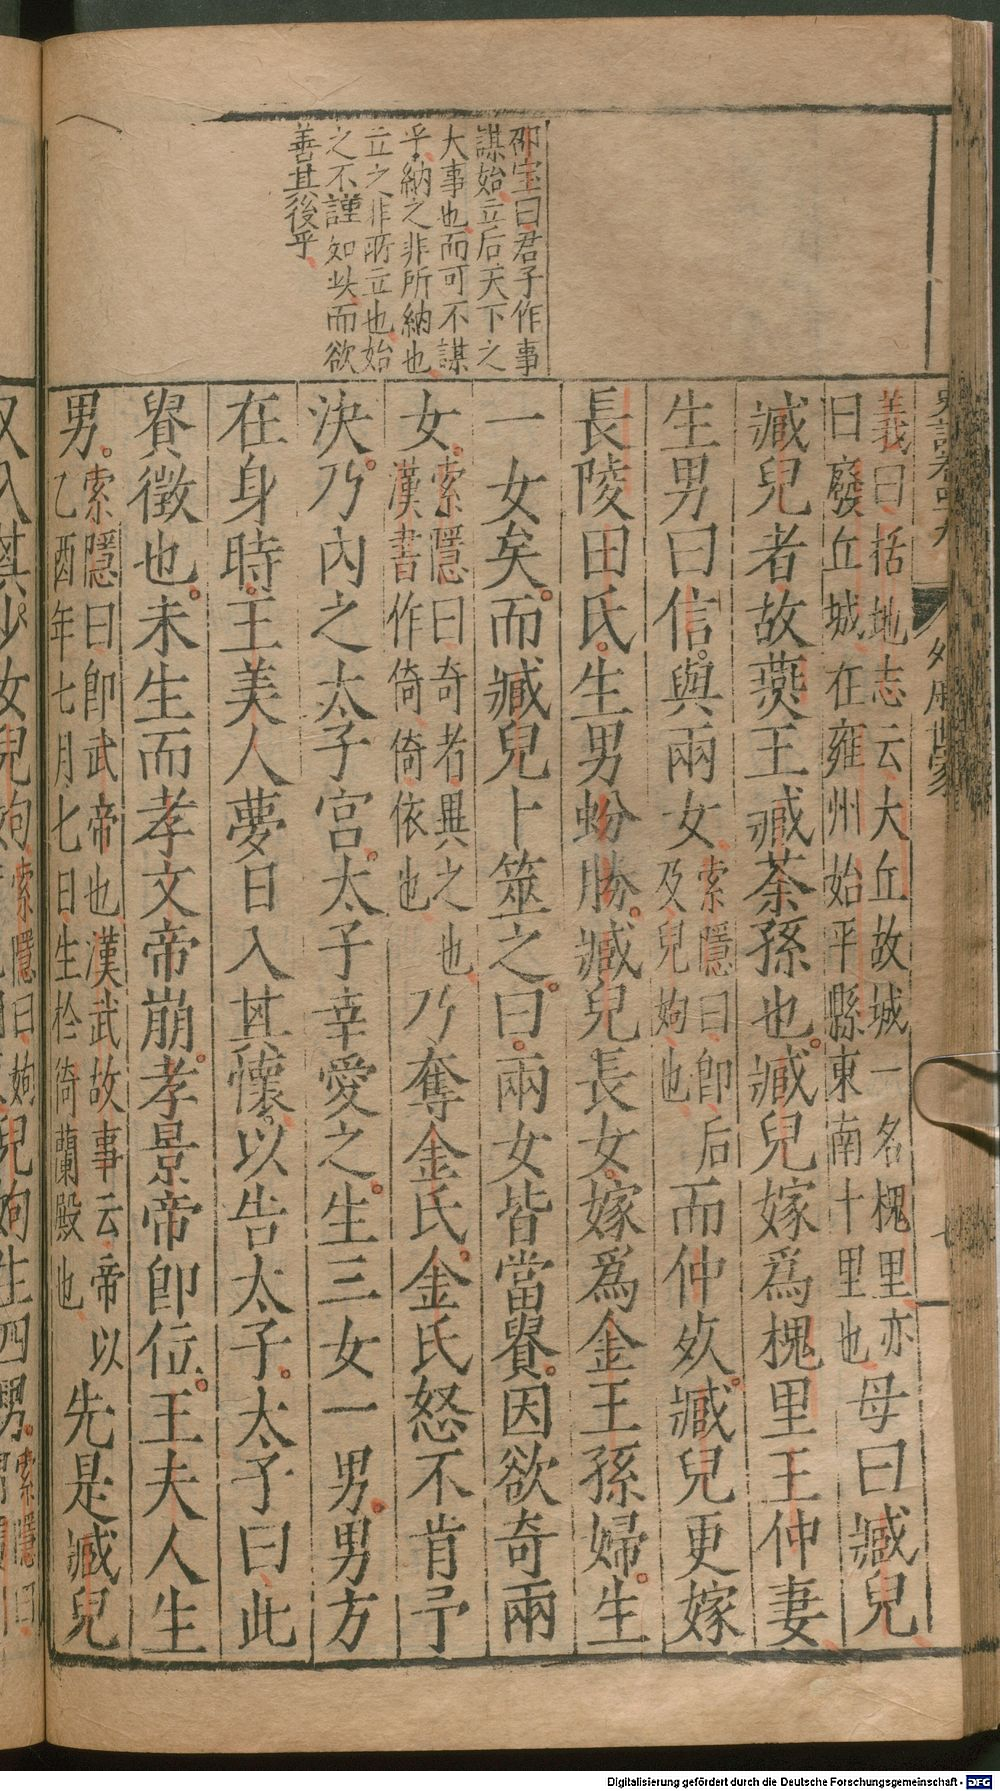 邵宝曰君子作事
謀始立后天下之
大事也而可不謀
乎納之非所納也
立之非所立也始
之不謹如此而欲
善其後乎
史記卷四十九
外戚世家
七
義曰括地志云犬丘故城一名槐里亦
曰廢丘城在雍州始平縣東南十里也
母曰臧兒
臧兒者故燕王臧荼孫也臧兒嫁爲槐里王仲妻
生男曰信與兩女
索隱曰即后
及兒姁也
而仲死臧兒更嫁
長陵田氏生男蚡勝臧兒長女嫁爲金王孫婦生
一女矣而臧兒卜筮之曰兩女皆當貴因欲奇兩
女
索隱曰奇者異之也
漢書作倚倚依也
乃奪金氏金氏怒不肯予
決乃內之太子宮太子幸愛之生三女一男男方
在身時王美人夢日入其懷以告太子太子曰此
貴徵也未生而孝文帝崩孝景帝即位王夫人生
男
索隱曰即武帝也漢武故事云帝以
乙酉年七月七日生於倚蘭殿也
先是臧兒
又入其少女兒姁
索隱曰姁
兒姁生四男
索隱曰
Digitalisierung gefördert durch die Deutsche Forschungsgemeinschaft - DFG